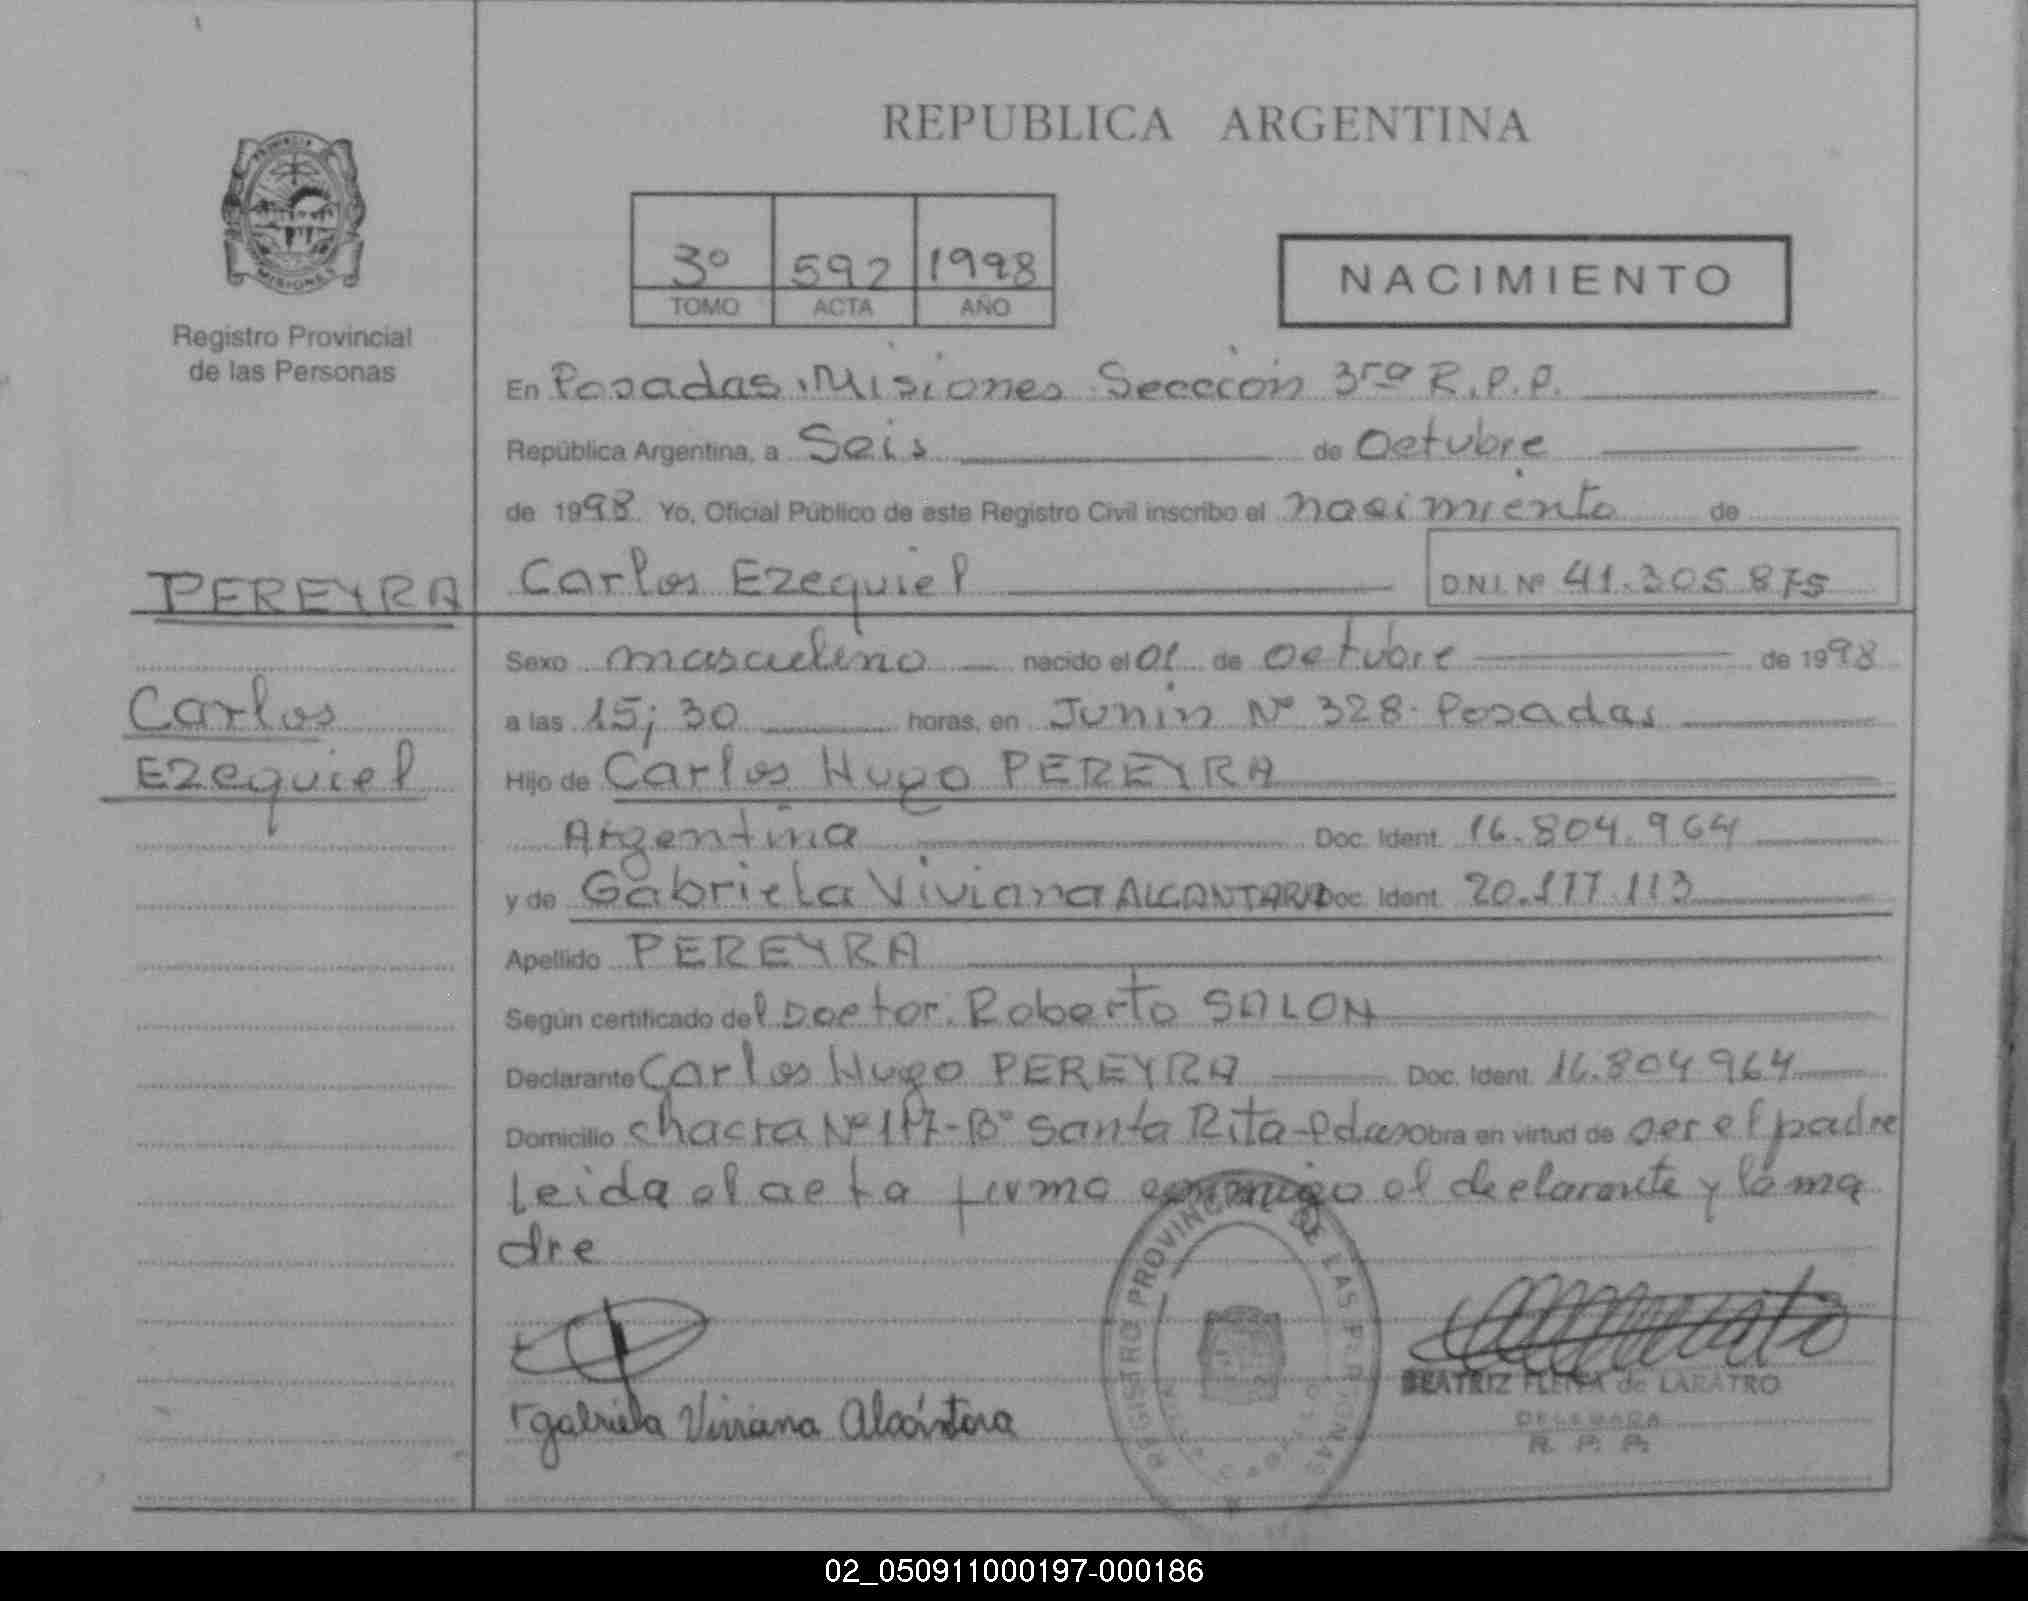 REPUBLICA ARGENTINA
PROVINCIA
MISIONES
Registro Provincial
de las Personas
3º 592 1998
TOMO ACTA AÑO
NACIMIENTO
En Posadas Misiones Sección 3ra R.P.P.
República Argentina, a Seis de Octubre
de 1998 Yo, Oficial Público de este Registro Civil inscribo el nacimiento de
PEREYRA
Carlos Ezequiel D.N.I. Nº 41.305.875
Carlos
Ezequiel
Sexo masculino nacido el 01 de octubre de 1998
a las 15;30 horas, en Junin Nº 328. Posadas
Hijo de Carlos Hugo PEREYRA
Argentina Doc. Ident. 16.804.964
y de Gabriela Viviana ALCANTARA Doc. Ident. 20.177.113
Apellido PEREYRA
Según certificado del Doctor. Roberto SALON
Declarante Carlos Hugo PEREYRA Doc. Ident. 16.804 964
Domicilio chacra Nº 117-Bº Santa Rita-Pdas Obra en virtud de ser el padre
Leida el acta firma conmigo el declarante y la ma
dre
REGISTRO PROVINCIAL DE LAS PERSONAS
gabriela Viviana Alcántara
BEATRIZ FLEITA de LARATRO
DELEGADA
R. P. P.
02_050911000197-000186